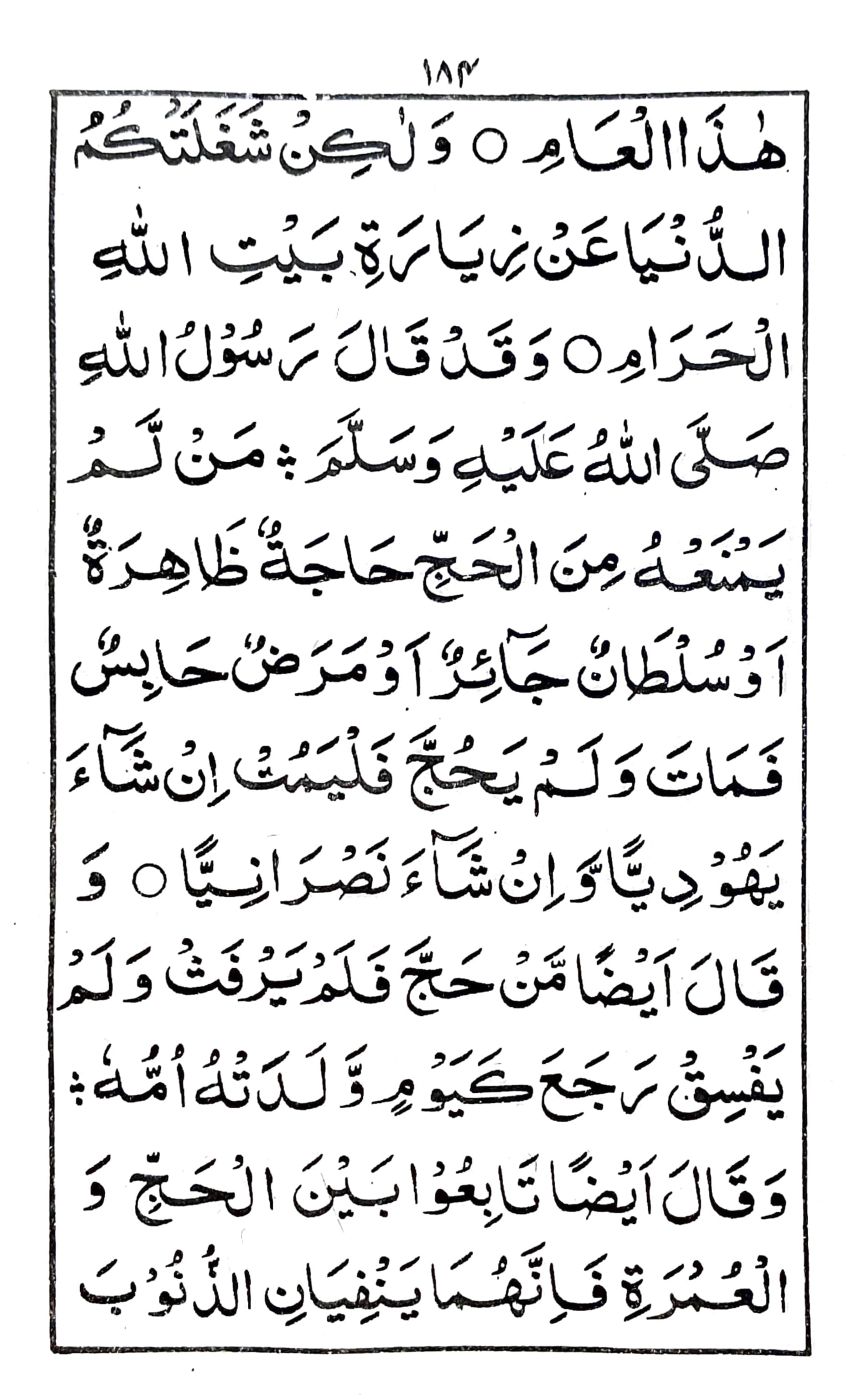 ۱۸۴
هٰذَا الْعَامِ ○ وَلٰكِنْ شَغَلَتْكُمُ
الدُّنْيَا عَنْ زِيَارَةِ بَيْتِ اللّٰهِ
الْحَرَامِ ○ وَقَدْ قَالَ رَسُوْلُ اللّٰهِ
صَلَّى اللّٰهُ عَلَيْهِ وَسَلَّمَ ؞ مَنْ لَّمْ
يَمْنَعْهُ مِنَ الْحَجِّ حَاجَةٌ ظَاهِرَةٌ
اَوْ سُلْطَانٌ جَآئِرٌ اَوْ مَرَضٌ حَابِسٌ
فَمَاتَ وَلَمْ يَحُجَّ فَلْيَمُتْ اِنْ شَآءَ
يَهُوْدِيًّا وَّاِنْ شَآءَ نَصْرَانِيًّا ○ وَ
قَالَ اَيْضًا مَّنْ حَجَّ فَلَمْ يَرْفَثْ وَلَمْ
يَفْسِقْ رَجَعَ كَيَوْمٍ وَّلَدَتْهُ اُمُّهٗ ؞
وَقَالَ اَيْضًا تَابِعُوْا بَيْنَ الْحَجِّ وَ
الْعُمْرَةِ فَاِنَّهُمَا يَنْفِيَانِ الذُّنُوْبَ